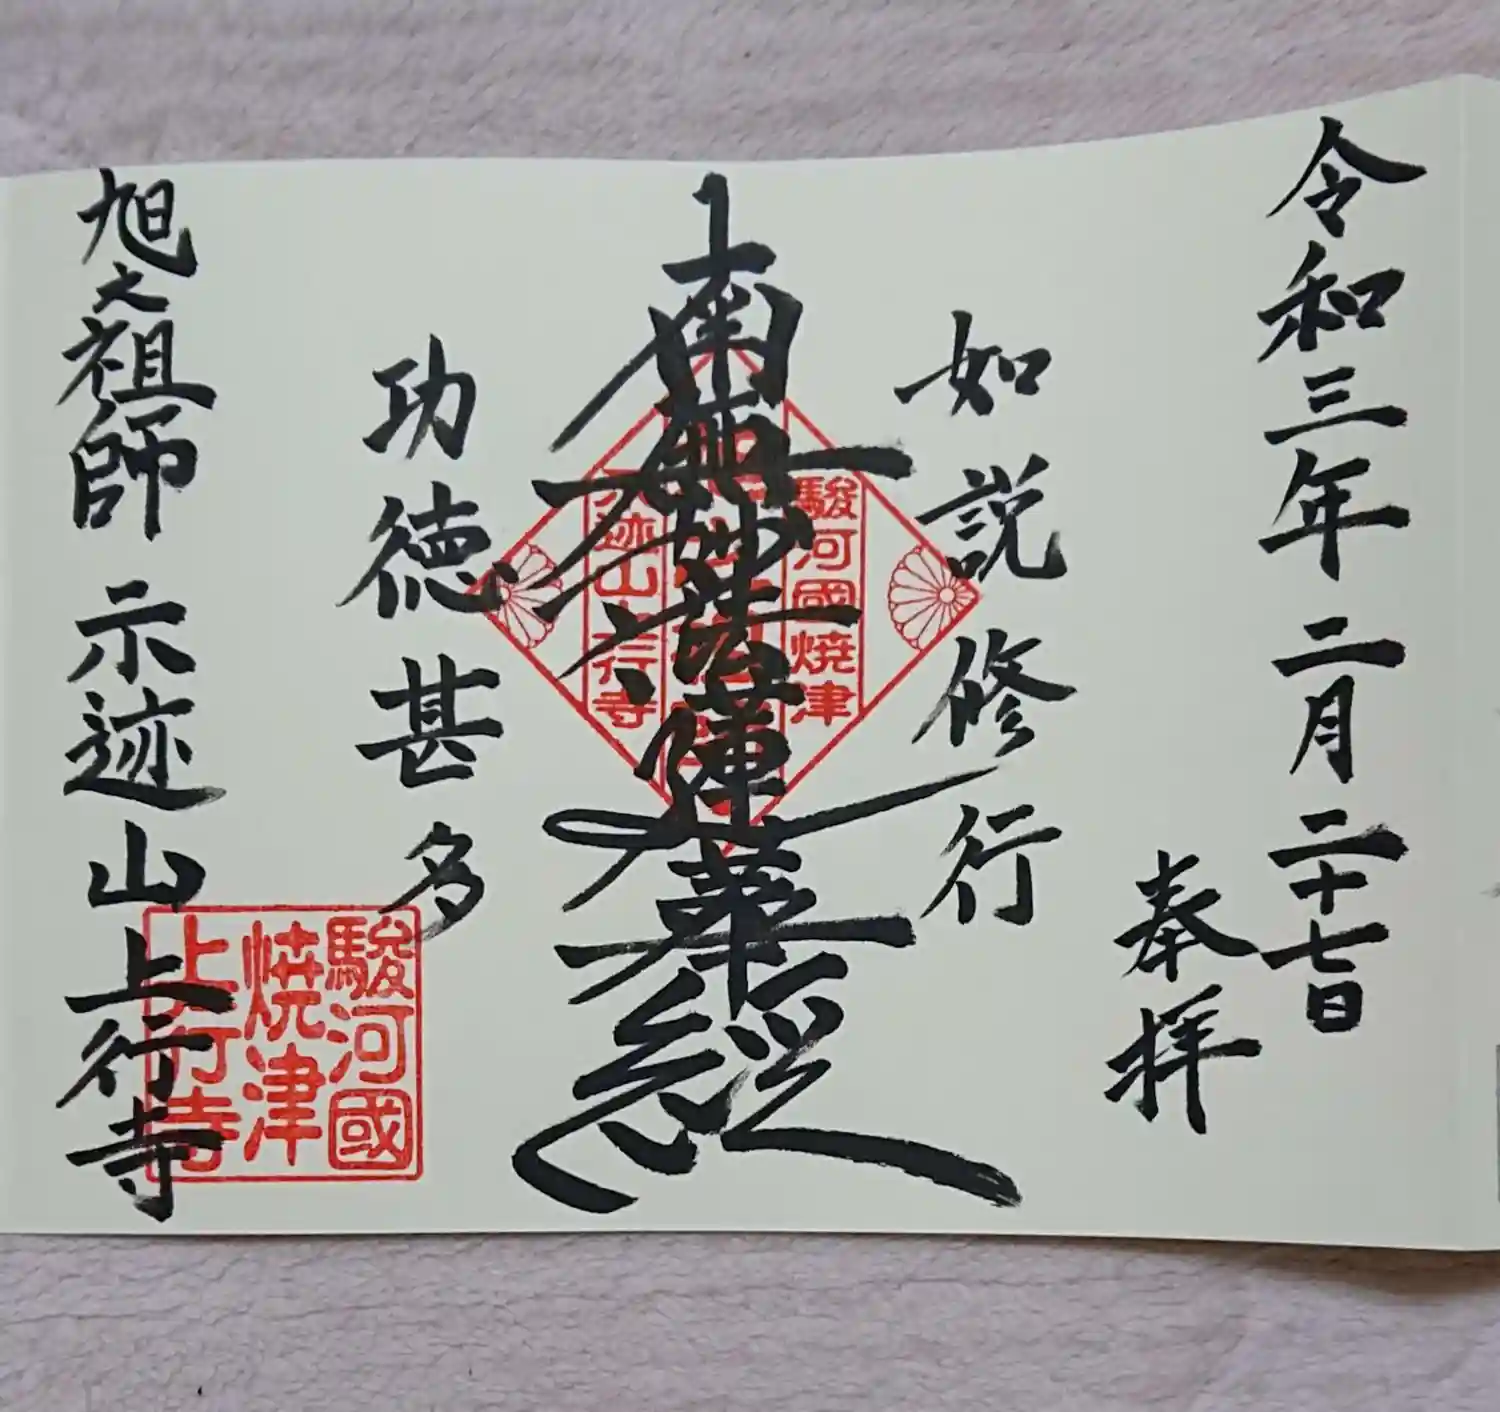 令和三年二月二十七日
奉拝
如説修行
南無妙法蓮華経
功徳甚多
旭之祖師 示迹山上行寺
駿河國焼津
示迹山上行寺
駿河國
焼津
上行寺